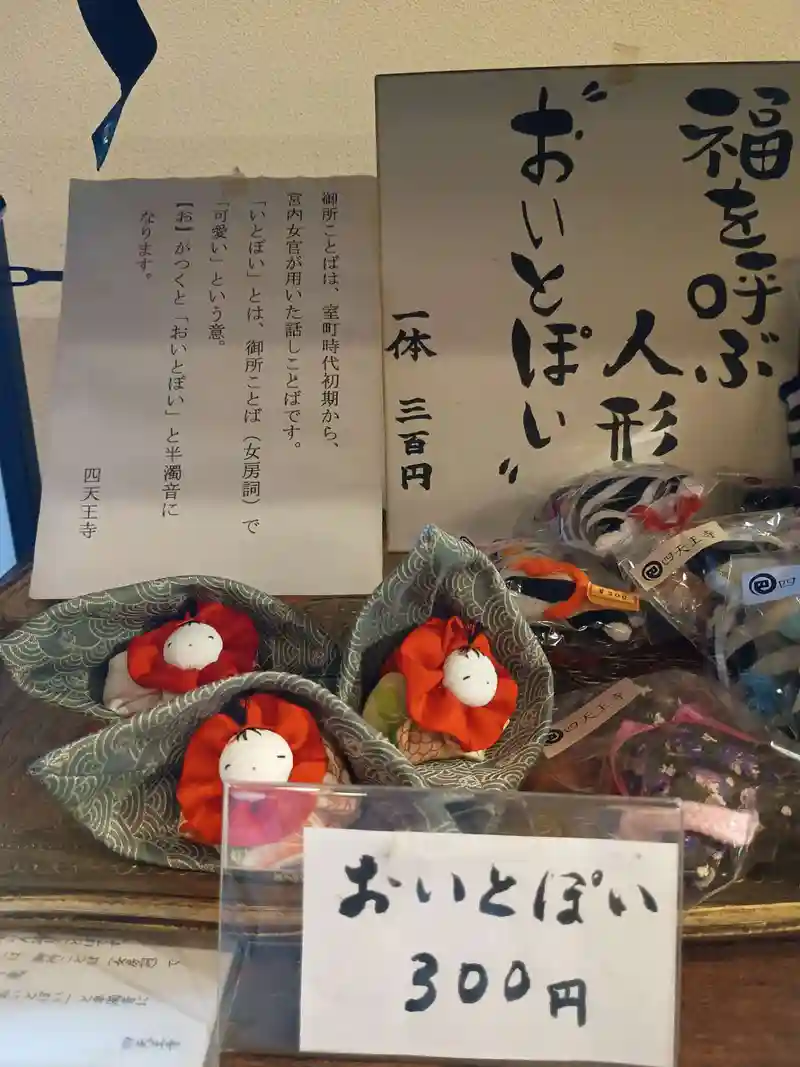 福を呼ぶ
人形
"おいとぽい"
一体 三百円
御所ことばは、室町時代初期から、
宮内女官が用いた話しことばです。
「いとぼい」とは、御所ことば(女房詞)で
「可愛い」という意。
【お】がつくと「おいとぽい」と半濁音に
なります。
四天王寺
四天王寺
四
四天王寺
おいとぽい
300円
四天王寺